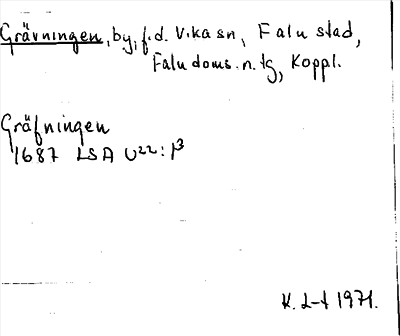 Grävningen, by, f.d. Vika sn, Falu stad,
Falu doms. n. tg, Koppl.
Gräfningen
1687 LSA U22:1³
K. L-t 1971.